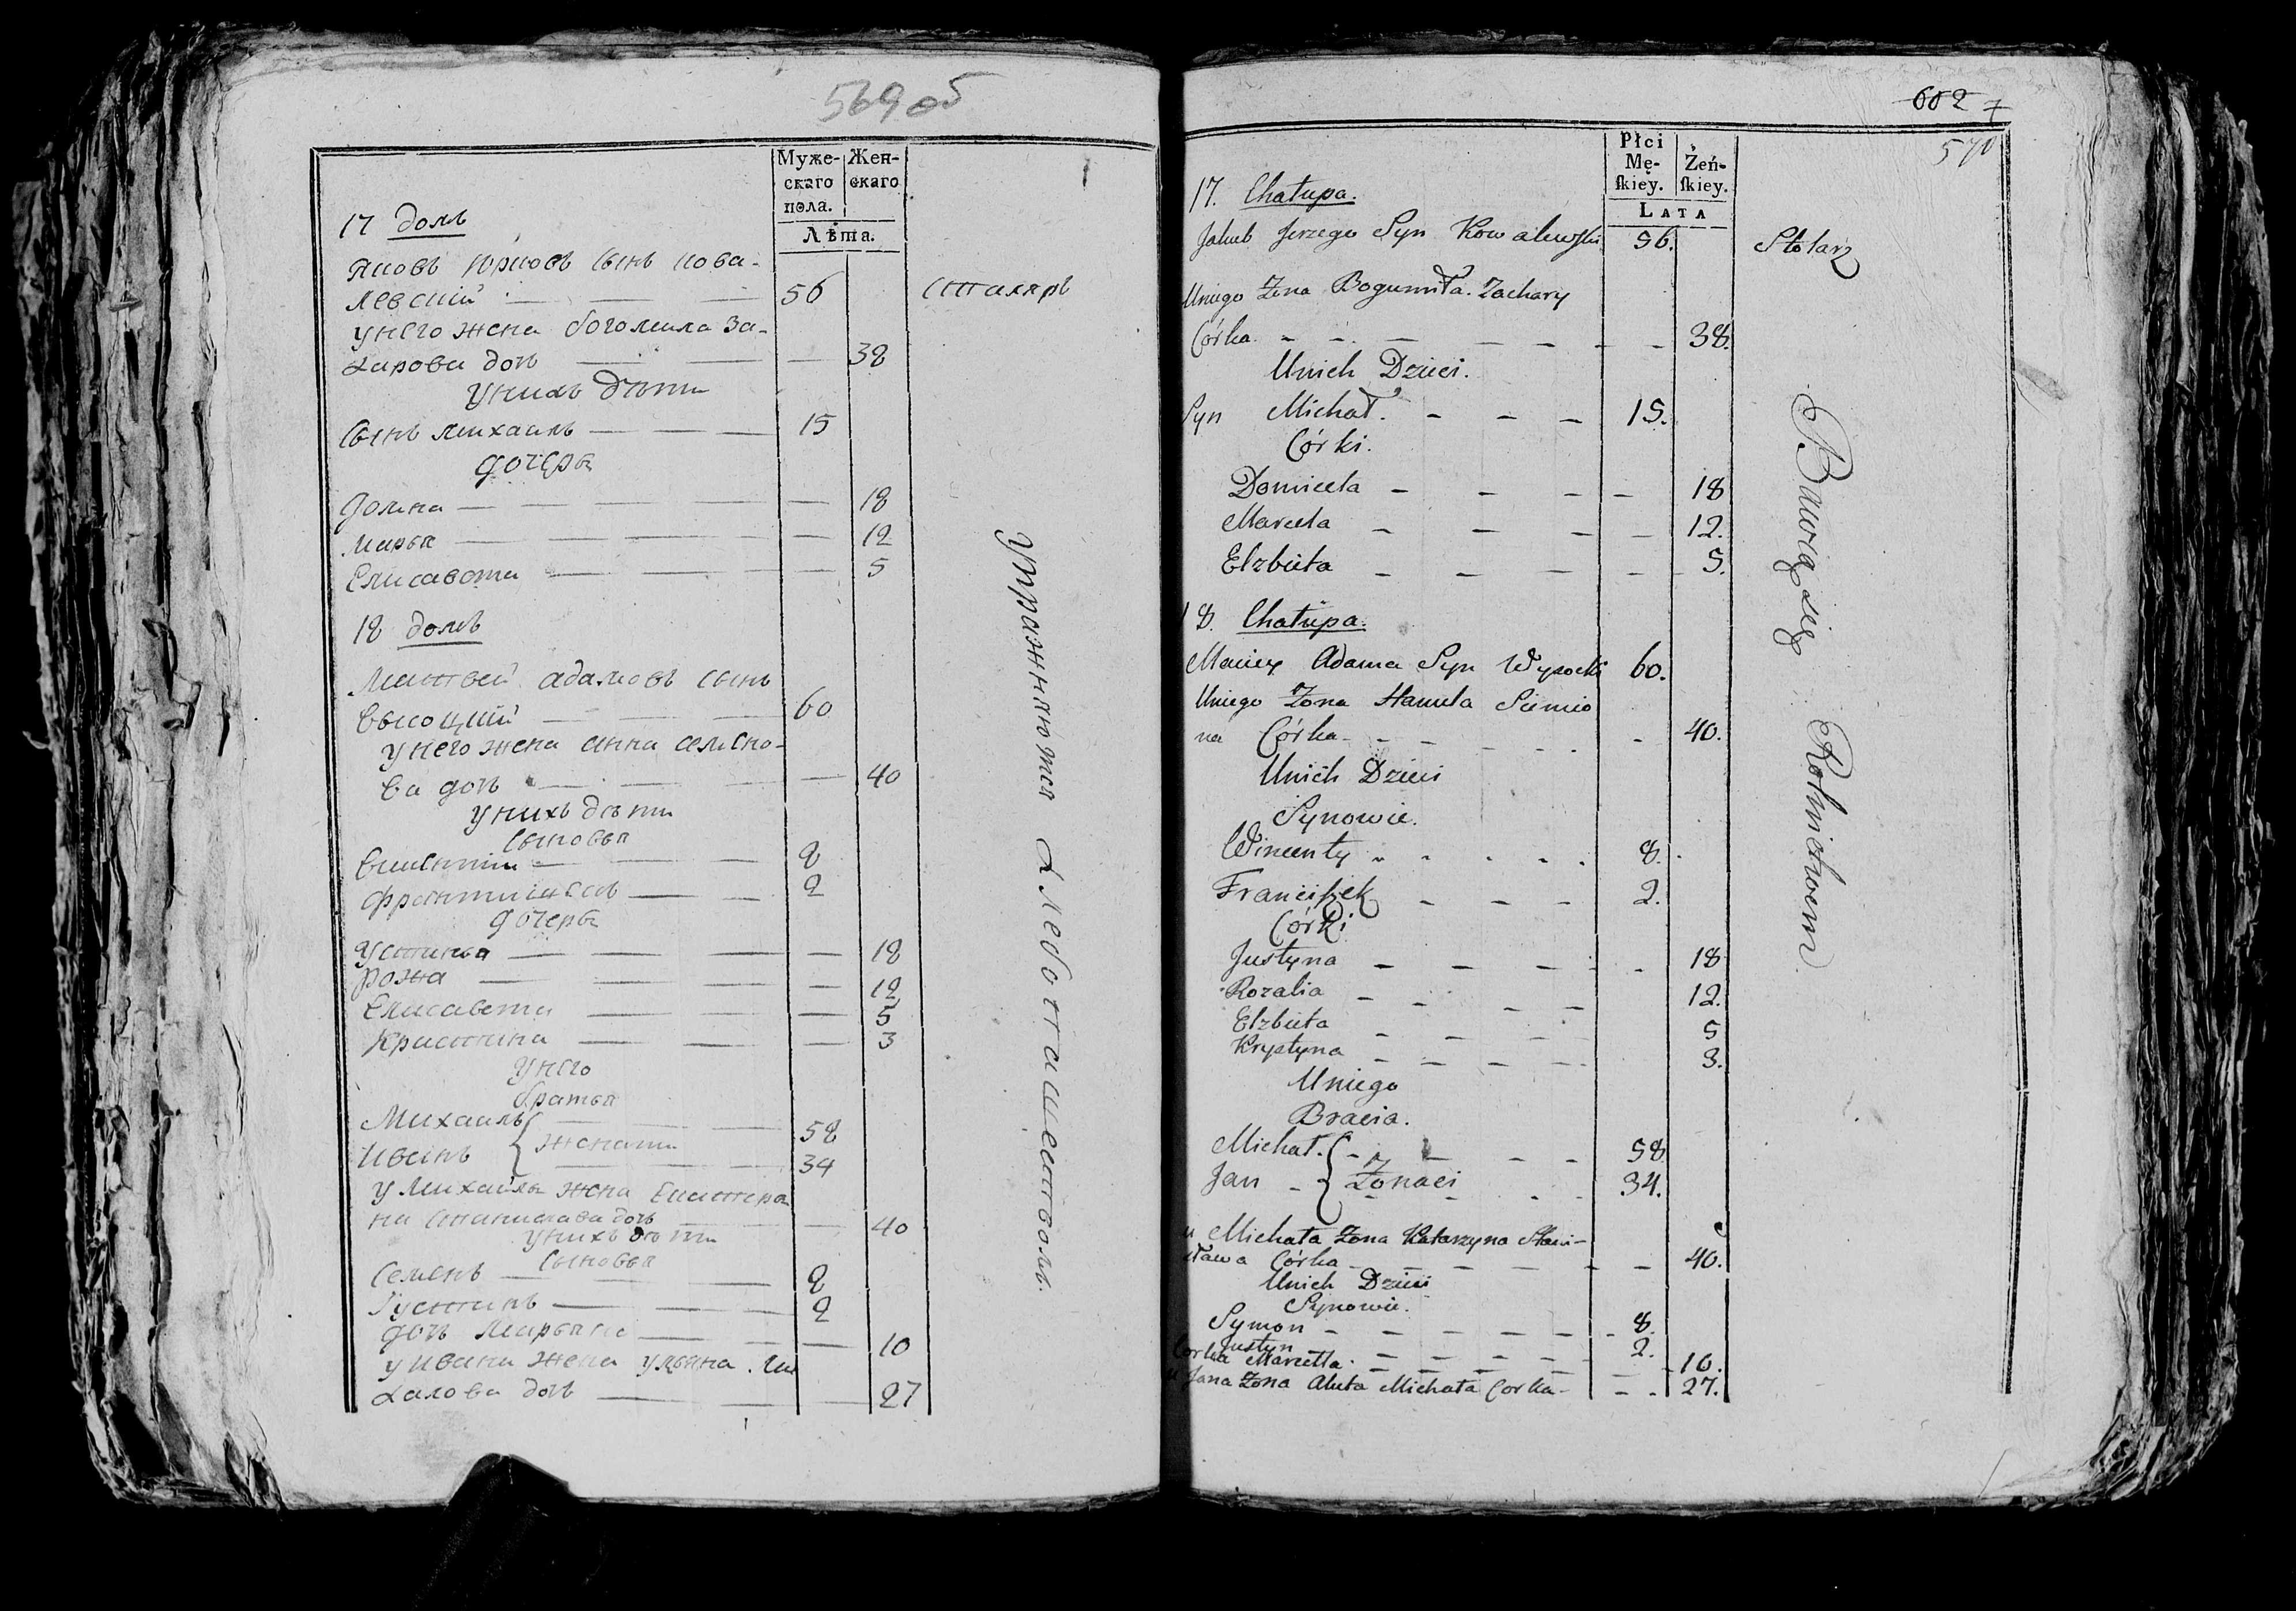 569 об
Муже-
скаго
пола.
Жен-
скаго
Лѣта.
17 домъ
Яковъ Юрьовъ сынъ Кова-
левскій — — — 56 столяръ
у него жена богомила За-
харова дочь — — — 38
у нихъ дѣти
сынъ михаилъ — — — 15
дочери
Домна — — — 18
марья — — — 12
Елисавета — — — 5
18 домъ
Матвей адамовъ сынъ
Высоцкій — — — 60
у него жена анна семено-
ва дочь — — — 40
у нихъ дѣти
сыновья
викентій — — — 8
францишекъ — — — 2
дочери
Устинья — — — 18
рожа — — — 12
Елисавета — — — 5
Кристина — — — 3
у него
братья
Михаилъ — — — 58
Иванъ { женаты — — — 34
у михайла жена Екатери-
на станислава дочь — — 40
у нихъ дѣти
сыновья
Семенъ — — — 8
Густинъ — — — 2
дочь Марьяна — — — 10
у ивана жена ульяна . Ми
халова дочь — — — 27
упражняются хлебопашествомъ.
602 7
570
Płci
Mę-
ſkiey.
Żeń-
ſkiey.
LATA
17. Chałupa.
Jakub Jerzego Syn Kowalewski 56. Stolarz
Uniego Żona Bogumiła. Zachary
Córka. — — — 38.
Unich Dzieci.
Syn Michał. — — — 15.
Córki.
Domicela — — — 18
Marcela — — — 12.
Elzbieta — — — 5.
18. Chałupa.
Maciey Adama Syn Wysocki 60.
Uniego Żona Hanula Siemio
na Córka — — — 40.
Unich Dzieci
Synowie.
Wincenty — — — 8.
Franciſzek — — — 2.
Córki
Justyna — — — 18
Rozalia — — — 12.
Elzbieta — — — 5
Krystyna — — — 3.
Uniego
Bracia.
Michał. — — — 58
Jan { Żonaci — — — 34.
u Michała Żona Katarzyna Stani-
sława Córka — — — 40.
Unich Dzieci
Synowie.
Symon — — — 8.
Justyn — — — 2.
Corka Marcella — — — 10.
u Jana Żona Michała Corka — — 27.
Bawią się Rolnictwem